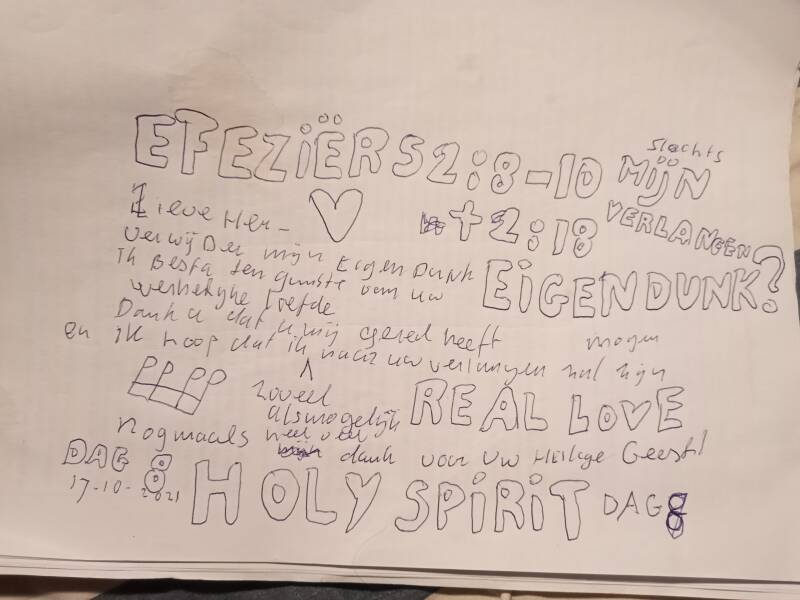 EFEZIËRS 2:8-10
slechts
MIJN
VERLANGEN
+ 2:18
EIGENDUNK?
Lieve Her-
verwijDer mijn EigenDunk
ik Besta ten gunste van uw
liefde
Dank u dat u mij gered heeft
en ik hoop dat ik naar uw verlangen zal zijn
mogen
zoveel
alsmogelijk
REAL LOVE
nogmaals heel veel dank voor uw Heilige Geest!
DAG 8
17-10-2021
HOLY SPIRIT
DAG 8